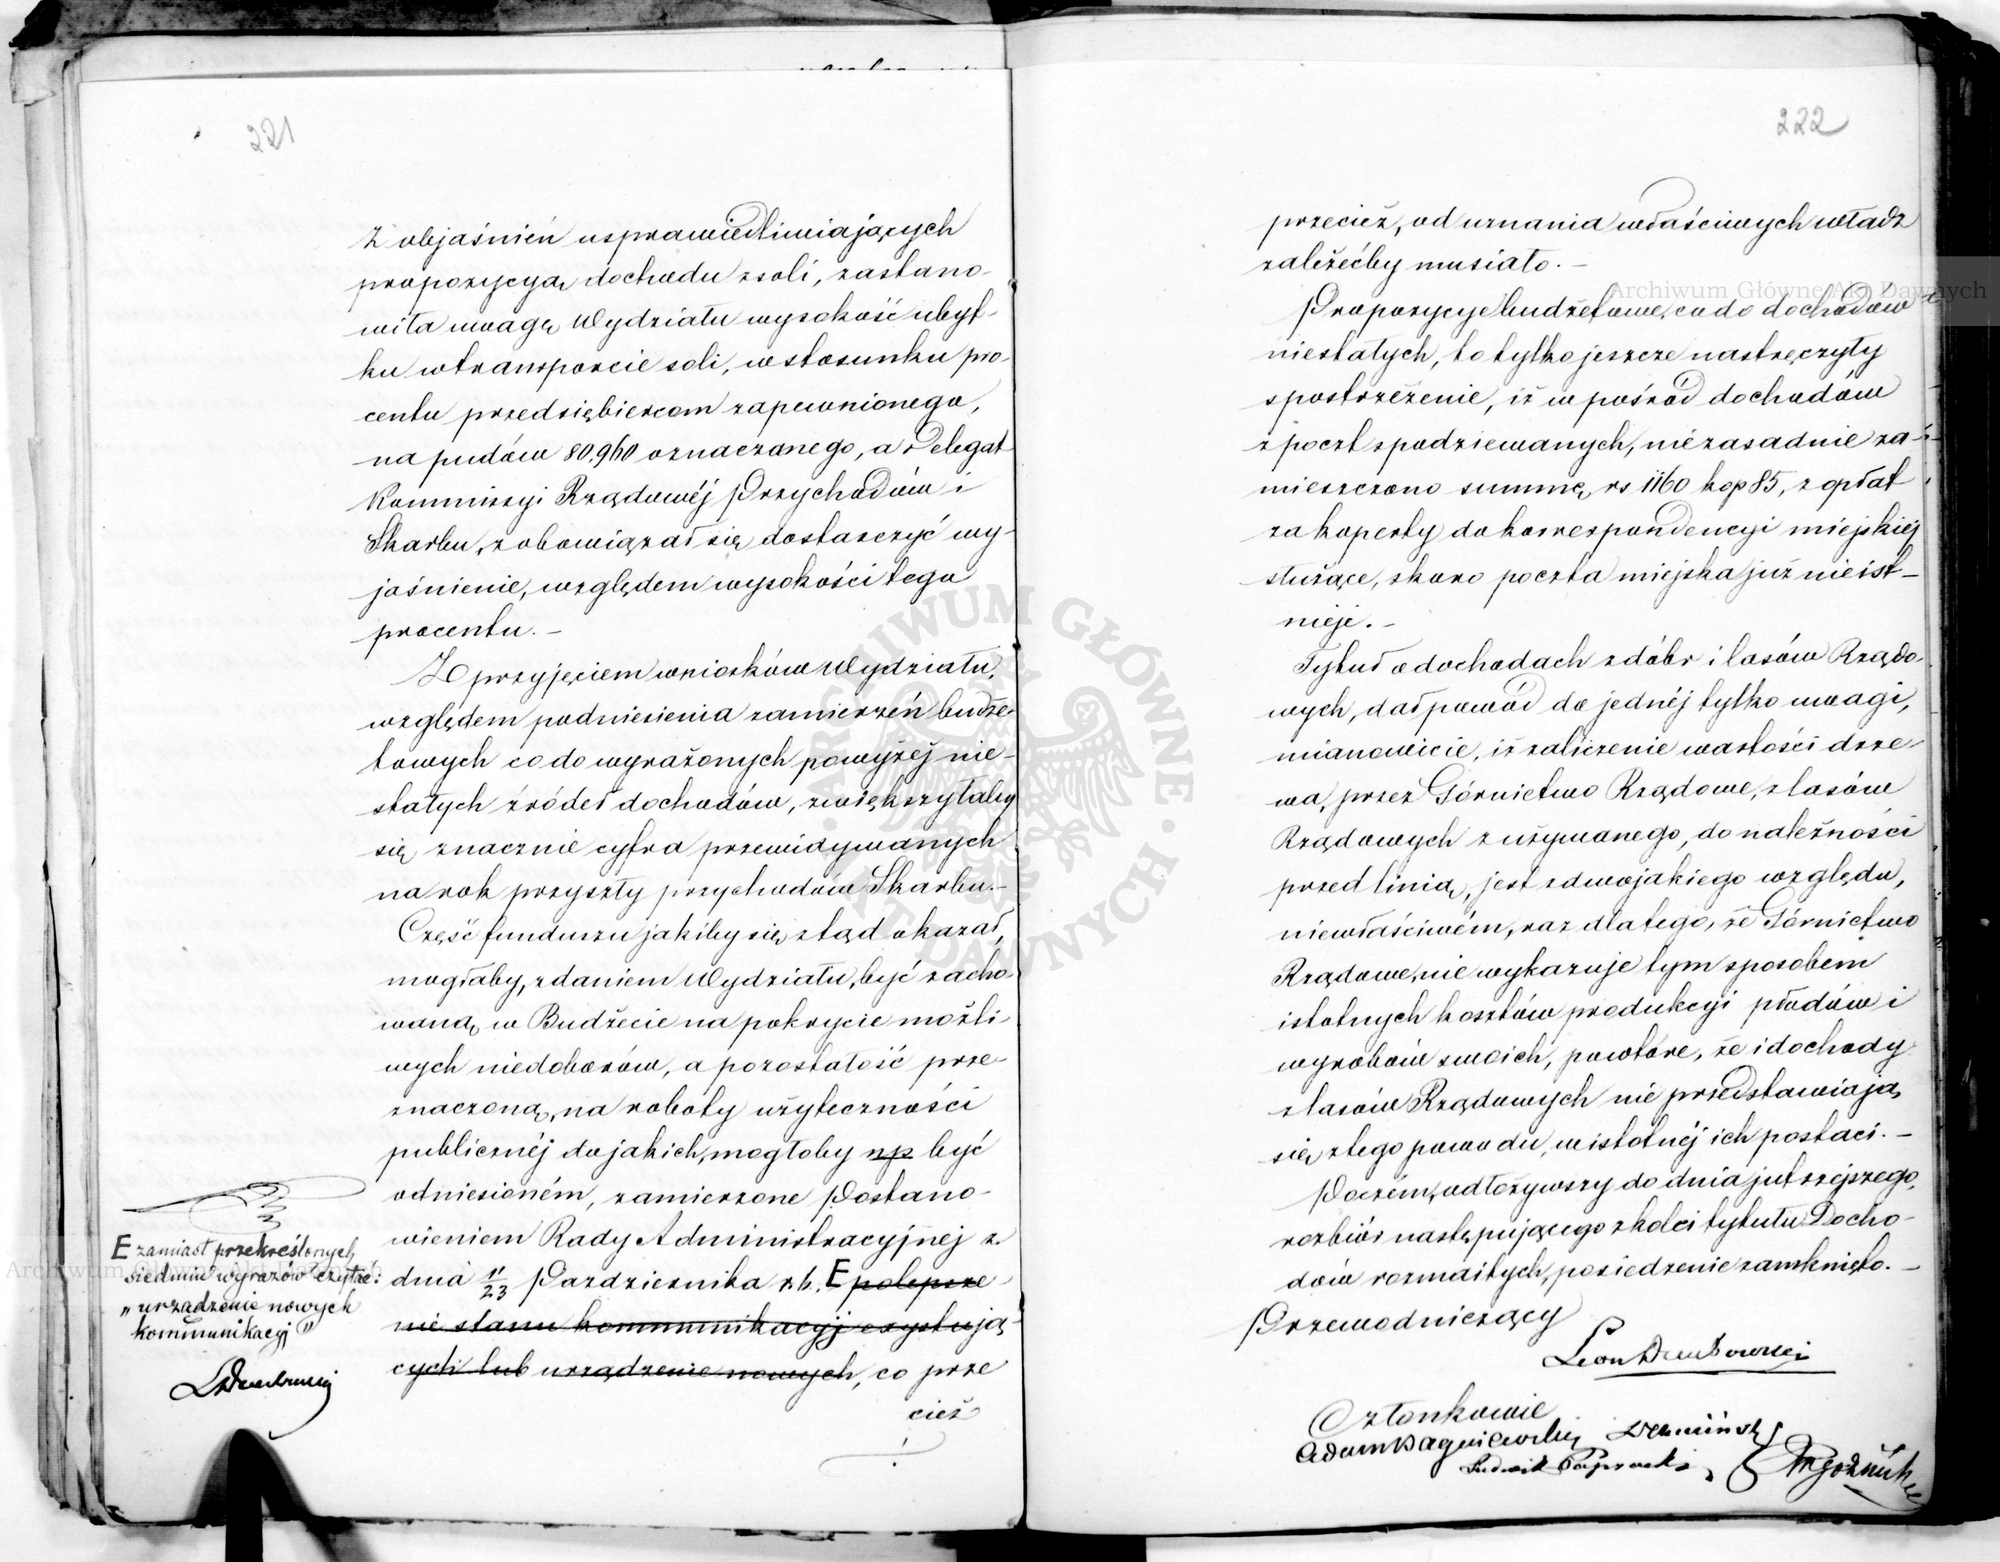 221
Z objaśnień usprawiedliwiających
propozycyą dochodu z soli, zastano-
wiła uwagę Wydziału wysokość ubyt-
ku w transporcie soli, w stosunku pro-
centu przedsiębiercom zapewnionego,
na pudów 80,960 oznaczonego, a Delegat
Kommissyi Rządowéj Przychodów i
Skarbu, zobowiązał się dostarczyć wy-
jaśnienie, względem wysokości tego
procentu. –
Z przyjęciem wniosków Wydziału,
względem podniesienia zamierzeń budże-
towych co do wyrażonych powyżéj nie-
stałych źródeł dochodów, zwiększyłaby
się znacznie cyfra przewidywanych
na rok przyszły przychodów Skarbu. –
Część funduszu jakiby się ztąd okazał,
mogłaby, zdaniem Wydziału, być zacho-
waną w Budżecie na pokrycie możli-
wych niedoborów, a pozostałość prze-
znaczoną, na roboty użyteczności
publicznéj do jakich, mogłoby np być
odniesioném, zamierzone Postano-
wieniem Rady Administracyjnéj z
dnia 11/23 Pazdziernika r. b. E polepsze-
nie stanu kommunikacyj exystują-
cych lub urządzenie nowych, co prze
cież
E zamiast przekreślonych
siedmiu wyrazów czytać:
„urządzenie nowych
kommunikacyj"
LDembowski
222
przecież, od uznania właściwych władz
zależéćby musiało. –
Propozycye budżetowe, co do dochodów
niestałych, to tylko jeszcze nastręczyły
spostrzeżenie, iż w pośród dochodów
z poczt spodziewanych, niezasadnie za-
mieszczono summę rs 1160 kop 85, z opłat
za koperty do korrespondencyi miejskiéj
służące, skoro poczta miejska już nieist-
nieje. –
Tytuł o dochodach z dóbr i lasów Rządo-
wych, dał powód do jednéj tylko uwagi,
mianowicie, iż zaliczenie wartości drze-
wa, przez Górnictwo Rządowe, z lasów
Rządowych zużywanego, do należności
przed linią, jest z dwojakiego względu,
niewłaściwém, raz dlatego, że Górnictwo
Rządowe, nie wykazuje tym sposobem
istotnych kosztów produkcyi płodów i
wyrobów swoich, powtóre, że i dochody
z lasów Rządowych nie przedstawiają
się z tego powodu, w istotnéj ich postaci. –
Poczém, odłożywszy do dnia jutrzéjszego,
rozbiór następującego z kolei tytułu Docho-
dów rozmaitych, posiedzenie zamknięto. –
Przewodniczący
Leon Dembowski
Członkowie
Adam Bagniewski
Ludwik Paprocki
Archiwum Główne Akt Dawnych
Archiwum Główne Akt Dawnych
ARCHIWUM GŁÓWNE AKT DAWNYCH